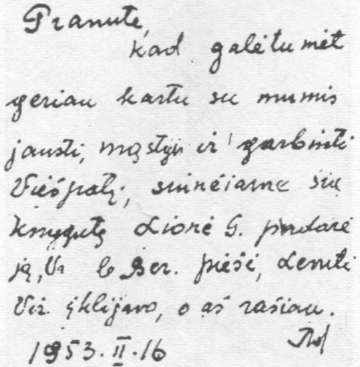 Pranute,
kad galėtumėt
geriau kartu su mumis
jausti, mąstyti ir garbinti
Viešpatį, suinėjame šią
knygutę Lionė G. padarė
ją, Vr. Ser. piešė, Lenuti
Vir. įklijavo, o aš rašiau.
1953.II.16